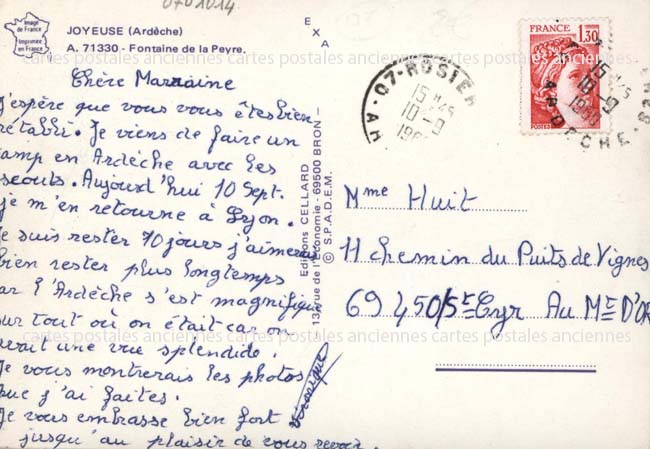 0701014
Image
de France
Imprimée
en France
JOYEUSE (Ardèche)
A. 71330 - Fontaine de la Peyre.
EXA
Chère Marraine
j'espère que vous vous êtes bien
rétabli. Je viens de faire un
camp en Ardèche avec les
scouts. Aujourd'hui 10 Sept.
je m'en retourne à Lyon.
Je suis rester 10 jours j'aimerais
bien rester plus longtemps
car l'Ardèche s'est magnifique
sur tout où on était car on
avait une vue splendide.
Je vous montrerais les photos
que j'ai faites.
Je vous embrasse bien fort
jusqu'au plaisir de vous revoir.
Véronique
Editions CELLARD
13, rue de l'Economie - 69500 BRON -
© S.P.A.D.E.M.
07-ROSIER
15 H 45
10-9
ARDECHE
FRANCE
1,30
POSTES
Mme Huit
11 chemin du Puits de Vignes
69 450 / St Cyr Au Mt D'OR
cartes postales anciennes cartes postales anciennes cartes postales anciennes